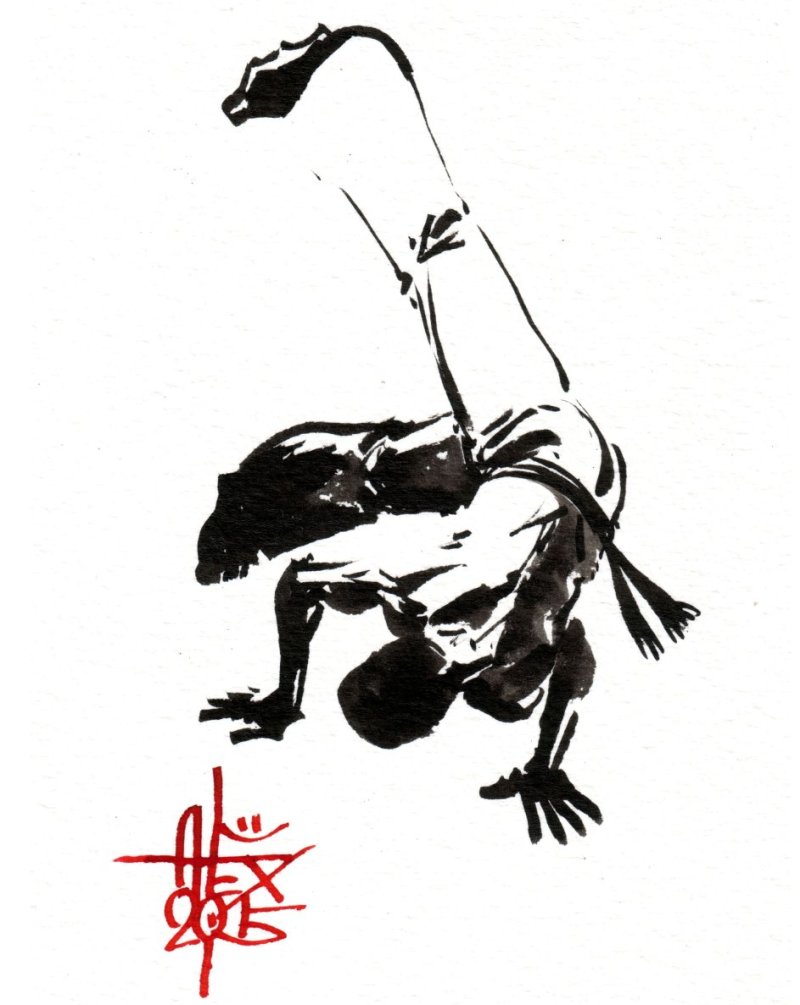 ALEX
2015